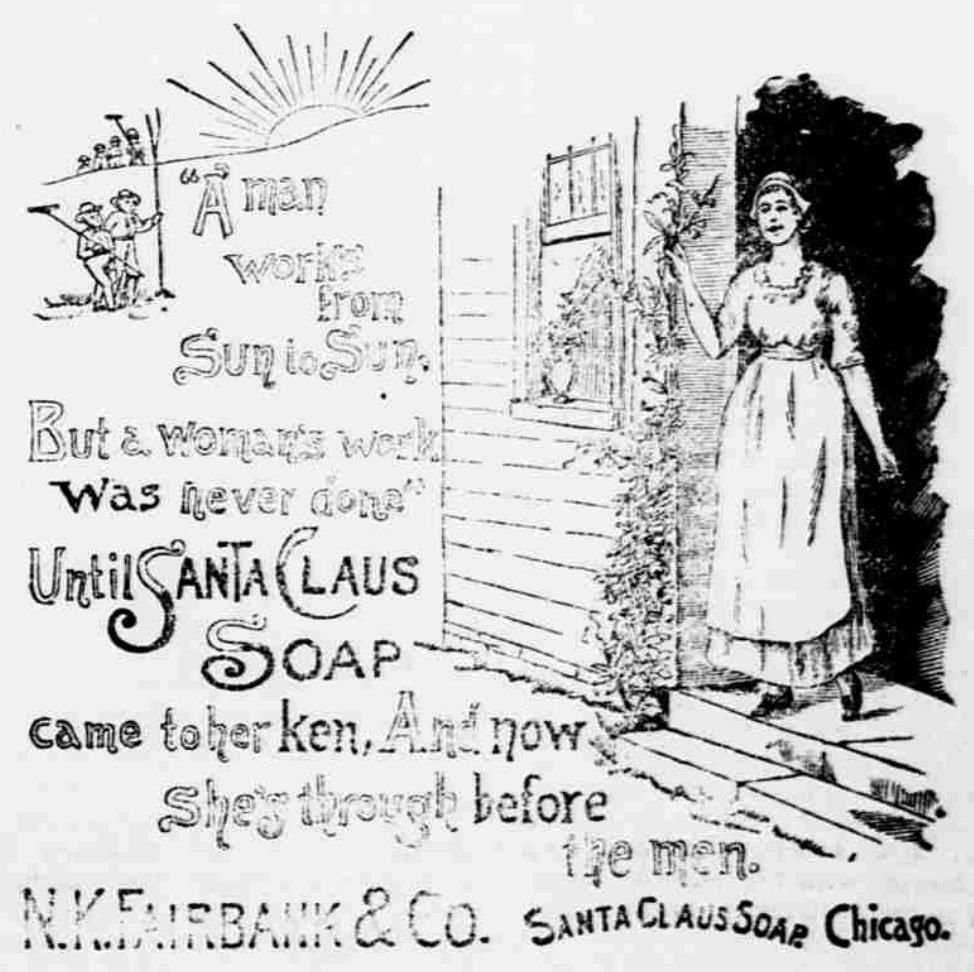 "A man
works
from
Sun to Sun.
But a woman's work
Was never done"
Until SANTA CLAUS
SOAP
came to her ken, And now
She's through before
the men.
N.K. FAIRBANK & CO. SANTA CLAUS SOAP. Chicago.